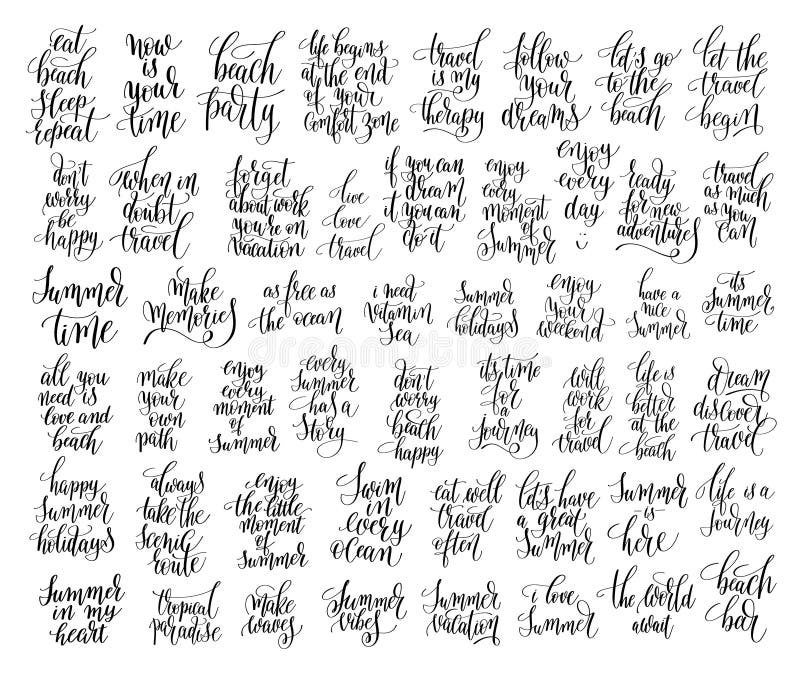 eat
beach
sleep
repeat
now
is
your
time
beach
party
life begins
at the end
of your
comfort zone
travel
is my
therapy
follow
your
dreams
let's go
to the
beach
let the
travel
begin
don't
worry
be
happy
when in
doubt
travel
forget
about work
you're on
vacation
live
love
travel
if you can
dream
it you can
do it
enjoy
every
moment
of
Summer
enjoy
every
day
:)
ready
for new
adventures
travel
as much
as you
can
Summer
time
make
memories
as free as
the ocean
i need
vitamin
sea
Summer
holidays
enjoy
your
weekend
have a
nice
Summer
it's
Summer
time
all you
need is
love and
beach
make
your
own
path
enjoy
every
moment
of
Summer
every
Summer
has a
Story
don't
worry
beach
happy
it's time
for
a
journey
will
work
for
travel
life is
better
at the
beach
dream
discover
travel
happy
Summer
holidays
always
take the
Scenic
route
enjoy
the little
moment
of
Summer
Swim
in
every
ocean
eat well
travel
often
let's have
a great
Summer
Summer
is
here
life is a
journey
Summer
in my
heart
tropical
paradise
make
waves
Summer
vibes
Summer
vacation
i love
Summer
the world
await
beach
bar
dreamstime